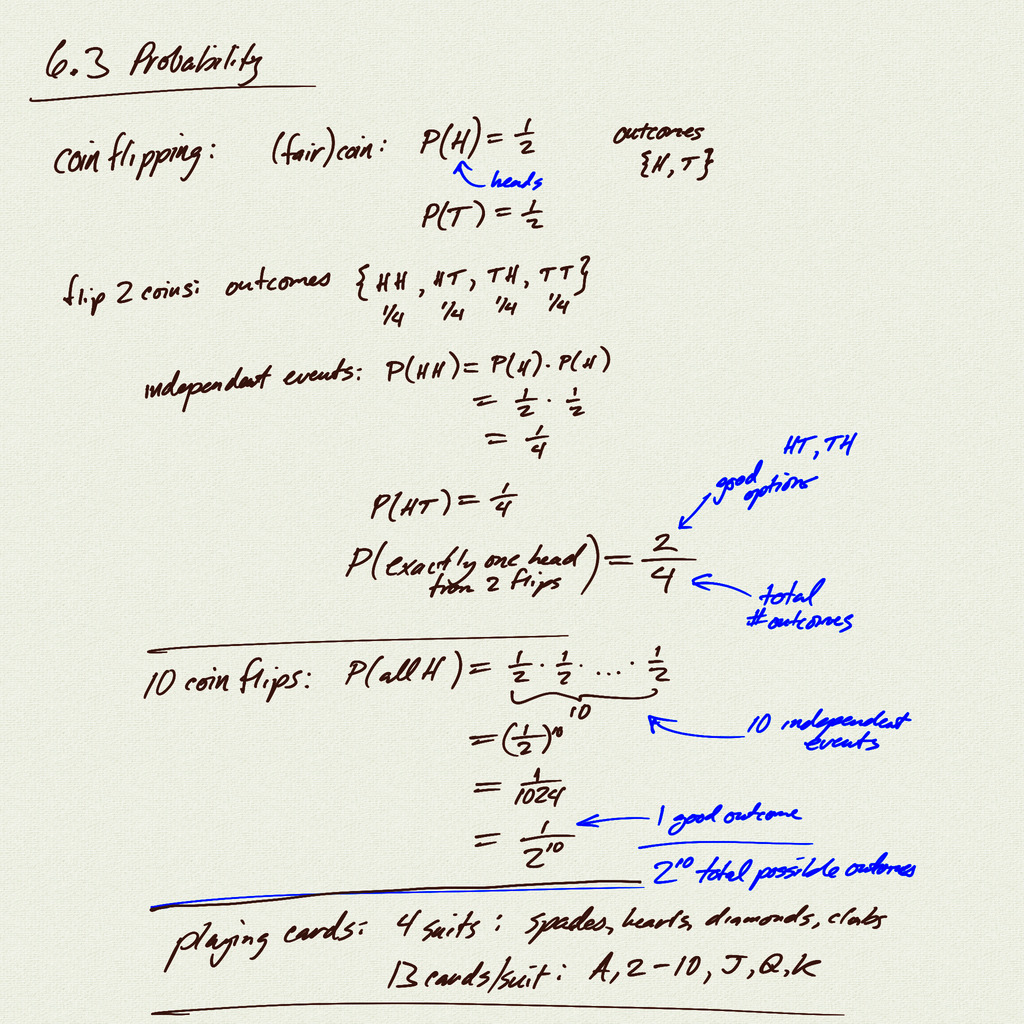 6.3 Probability
coin flipping: (fair) coin: P(H) = 1/2 outcomes
{H, T}
heads
P(T) = 1/2
flip 2 coins: outcomes {HH, HT, TH, TT}
1/4 1/4 1/4 1/4
independent events: P(HH) = P(H) · P(H)
= 1/2 · 1/2
= 1/4
HT, TH
good options
P(HT) = 1/4
P(exactly one head from 2 flips) = 2/4
total # outcomes
10 coin flips: P(all H) = 1/2 · 1/2 · ... · 1/2
10
10 independent events
= (1/2)^10
= 1/1024
= 1/2^10
1 good outcome
2^10 total possible outcomes
playing cards: 4 suits: spades, hearts, diamonds, clubs
13 cards/suit: A, 2-10, J, Q, K